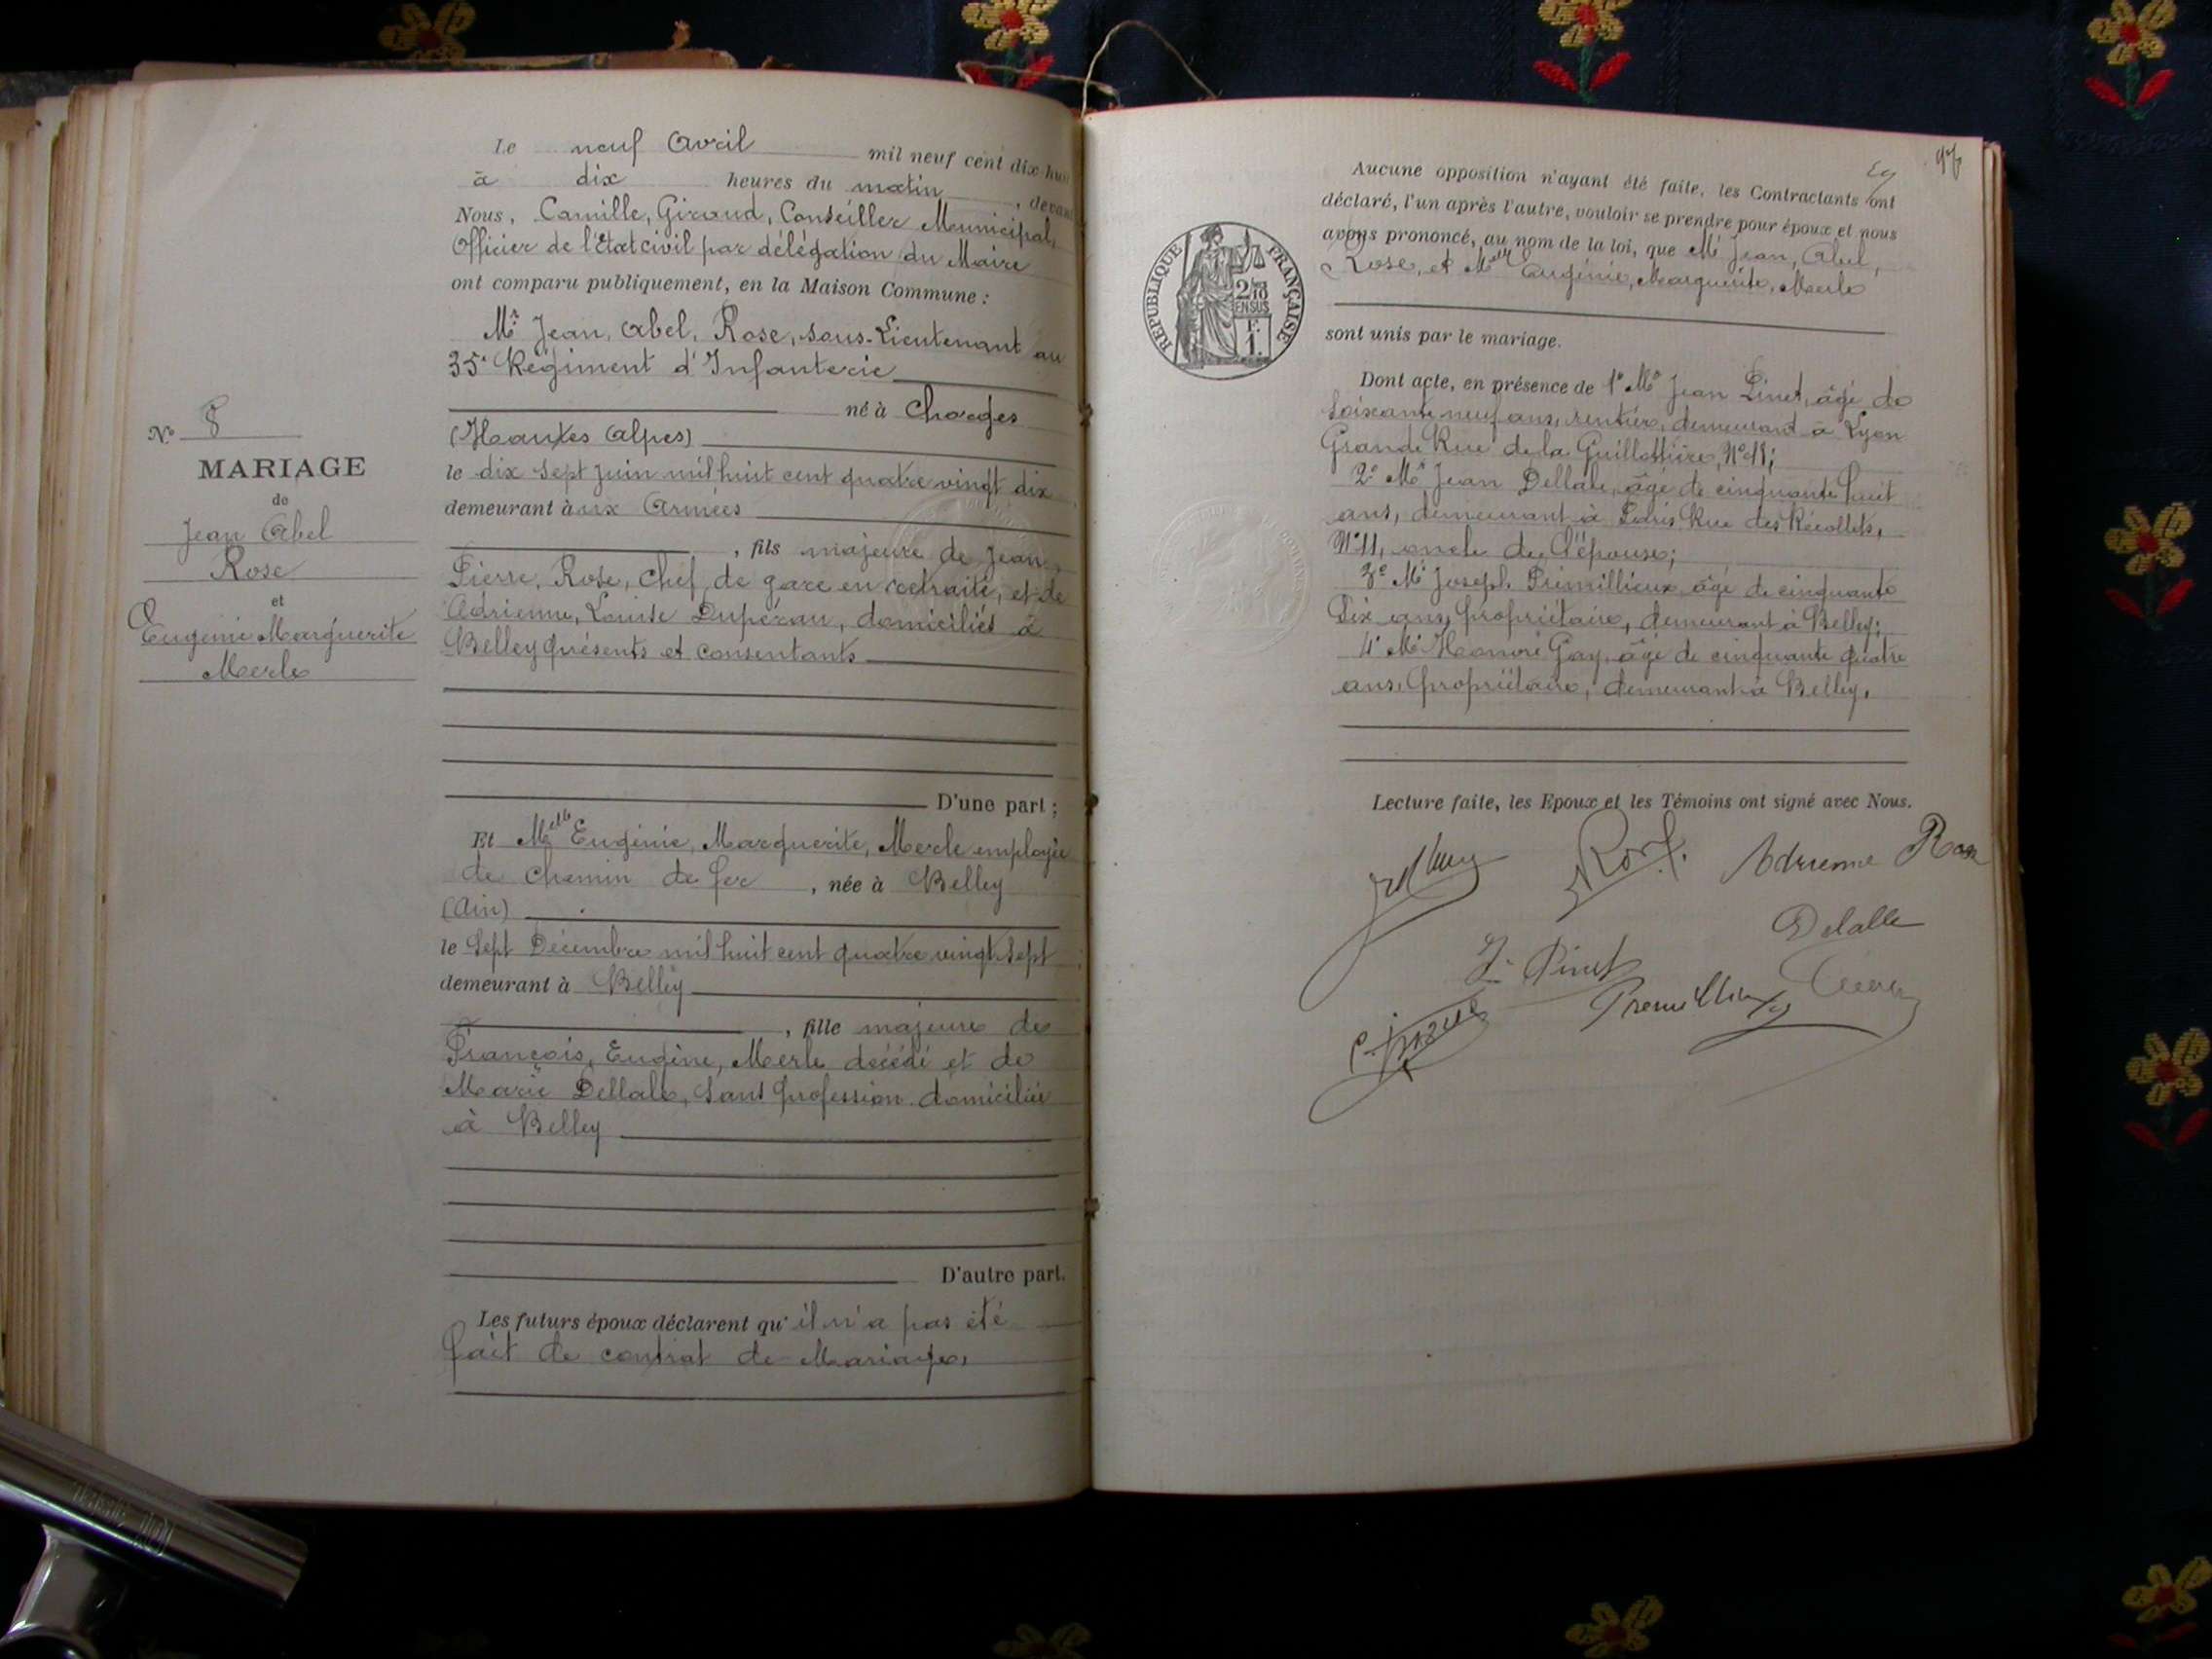 Le neuf Avril mil neuf cent dix-huit
à dix heures du matin, devant
Nous, Camille, Giraud, Conseiller Municipal,
Officier de l'Etat civil par délégation du Maire
ont comparu publiquement, en la Maison Commune :
Mr Jean, Abel, Rose, sous-Lieutenant au
35e Régiment d'Infanterie
né à Chorges
(Hautes Alpes)
le dix sept juin mil huit cent quatre vingt dix
demeurant à aux Armées
, fils majeure de Jean,
Pierre, Rose, Chef de gare en retraite, et de
Adrienne, Louise Dupérau, domiciliés à
Belley présents et consentants
D'une part ;
Et Melle Eugénie, Marguerite, Merle employée
de chemin de fer, née à Belley
(Ain)
le Sept Décembre mil huit cent quatre vingt sept
demeurant à Belley
, fille majeure de
François, Eugène, Merle décédé et de
Marie Dellale, sans profession domiciliée
à Belley
D'autre part.
Les futurs époux déclarent qu' il n'a pas été
fait de contrat de Mariage,
No 8
MARIAGE
de
Jean Abel
Rose
et
Eugénie Marguerite
Merle
97
Aucune opposition n'ayant été faite, les Contractants ont
déclaré, l'un après l'autre, vouloir se prendre pour époux et nous
avons prononcé, au nom de la loi, que Mr Jean, Abel,
Rose, et Melle Eugénie, Marguerite, Merle
sont unis par le mariage.
REPUBLIQUE FRANÇAISE
2/10
EN SUS
F.
1.
Dont acte, en présence de 1° Mr Jean Pinet, âgé de
soixante neuf ans, rentier, demeurant à Lyon
Grande Rue de la Guillottière, N°
2° Mr Jean Dellale, âgé de cinquante huit
ans, demeurant à Paris Rue des Récollets,
N° 11, oncle de l'épouse;
3° Mr Joseph Prémillieux âgé de cinquante
Six ans, propriétaire, demeurant à Belley;
4° Mr Honoré Gay, âgé de cinquante quatre
ans, propriétaire, demeurant à Belley.
Lecture faite, les Epoux et les Témoins ont signé avec Nous.
Rose
Adrienne Rose
Delalle
J. Pinet
Premillieux